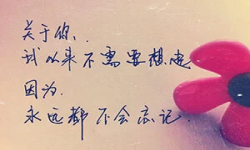 关于你、
我从来不需要想起
因为.
永远都不会忘记.